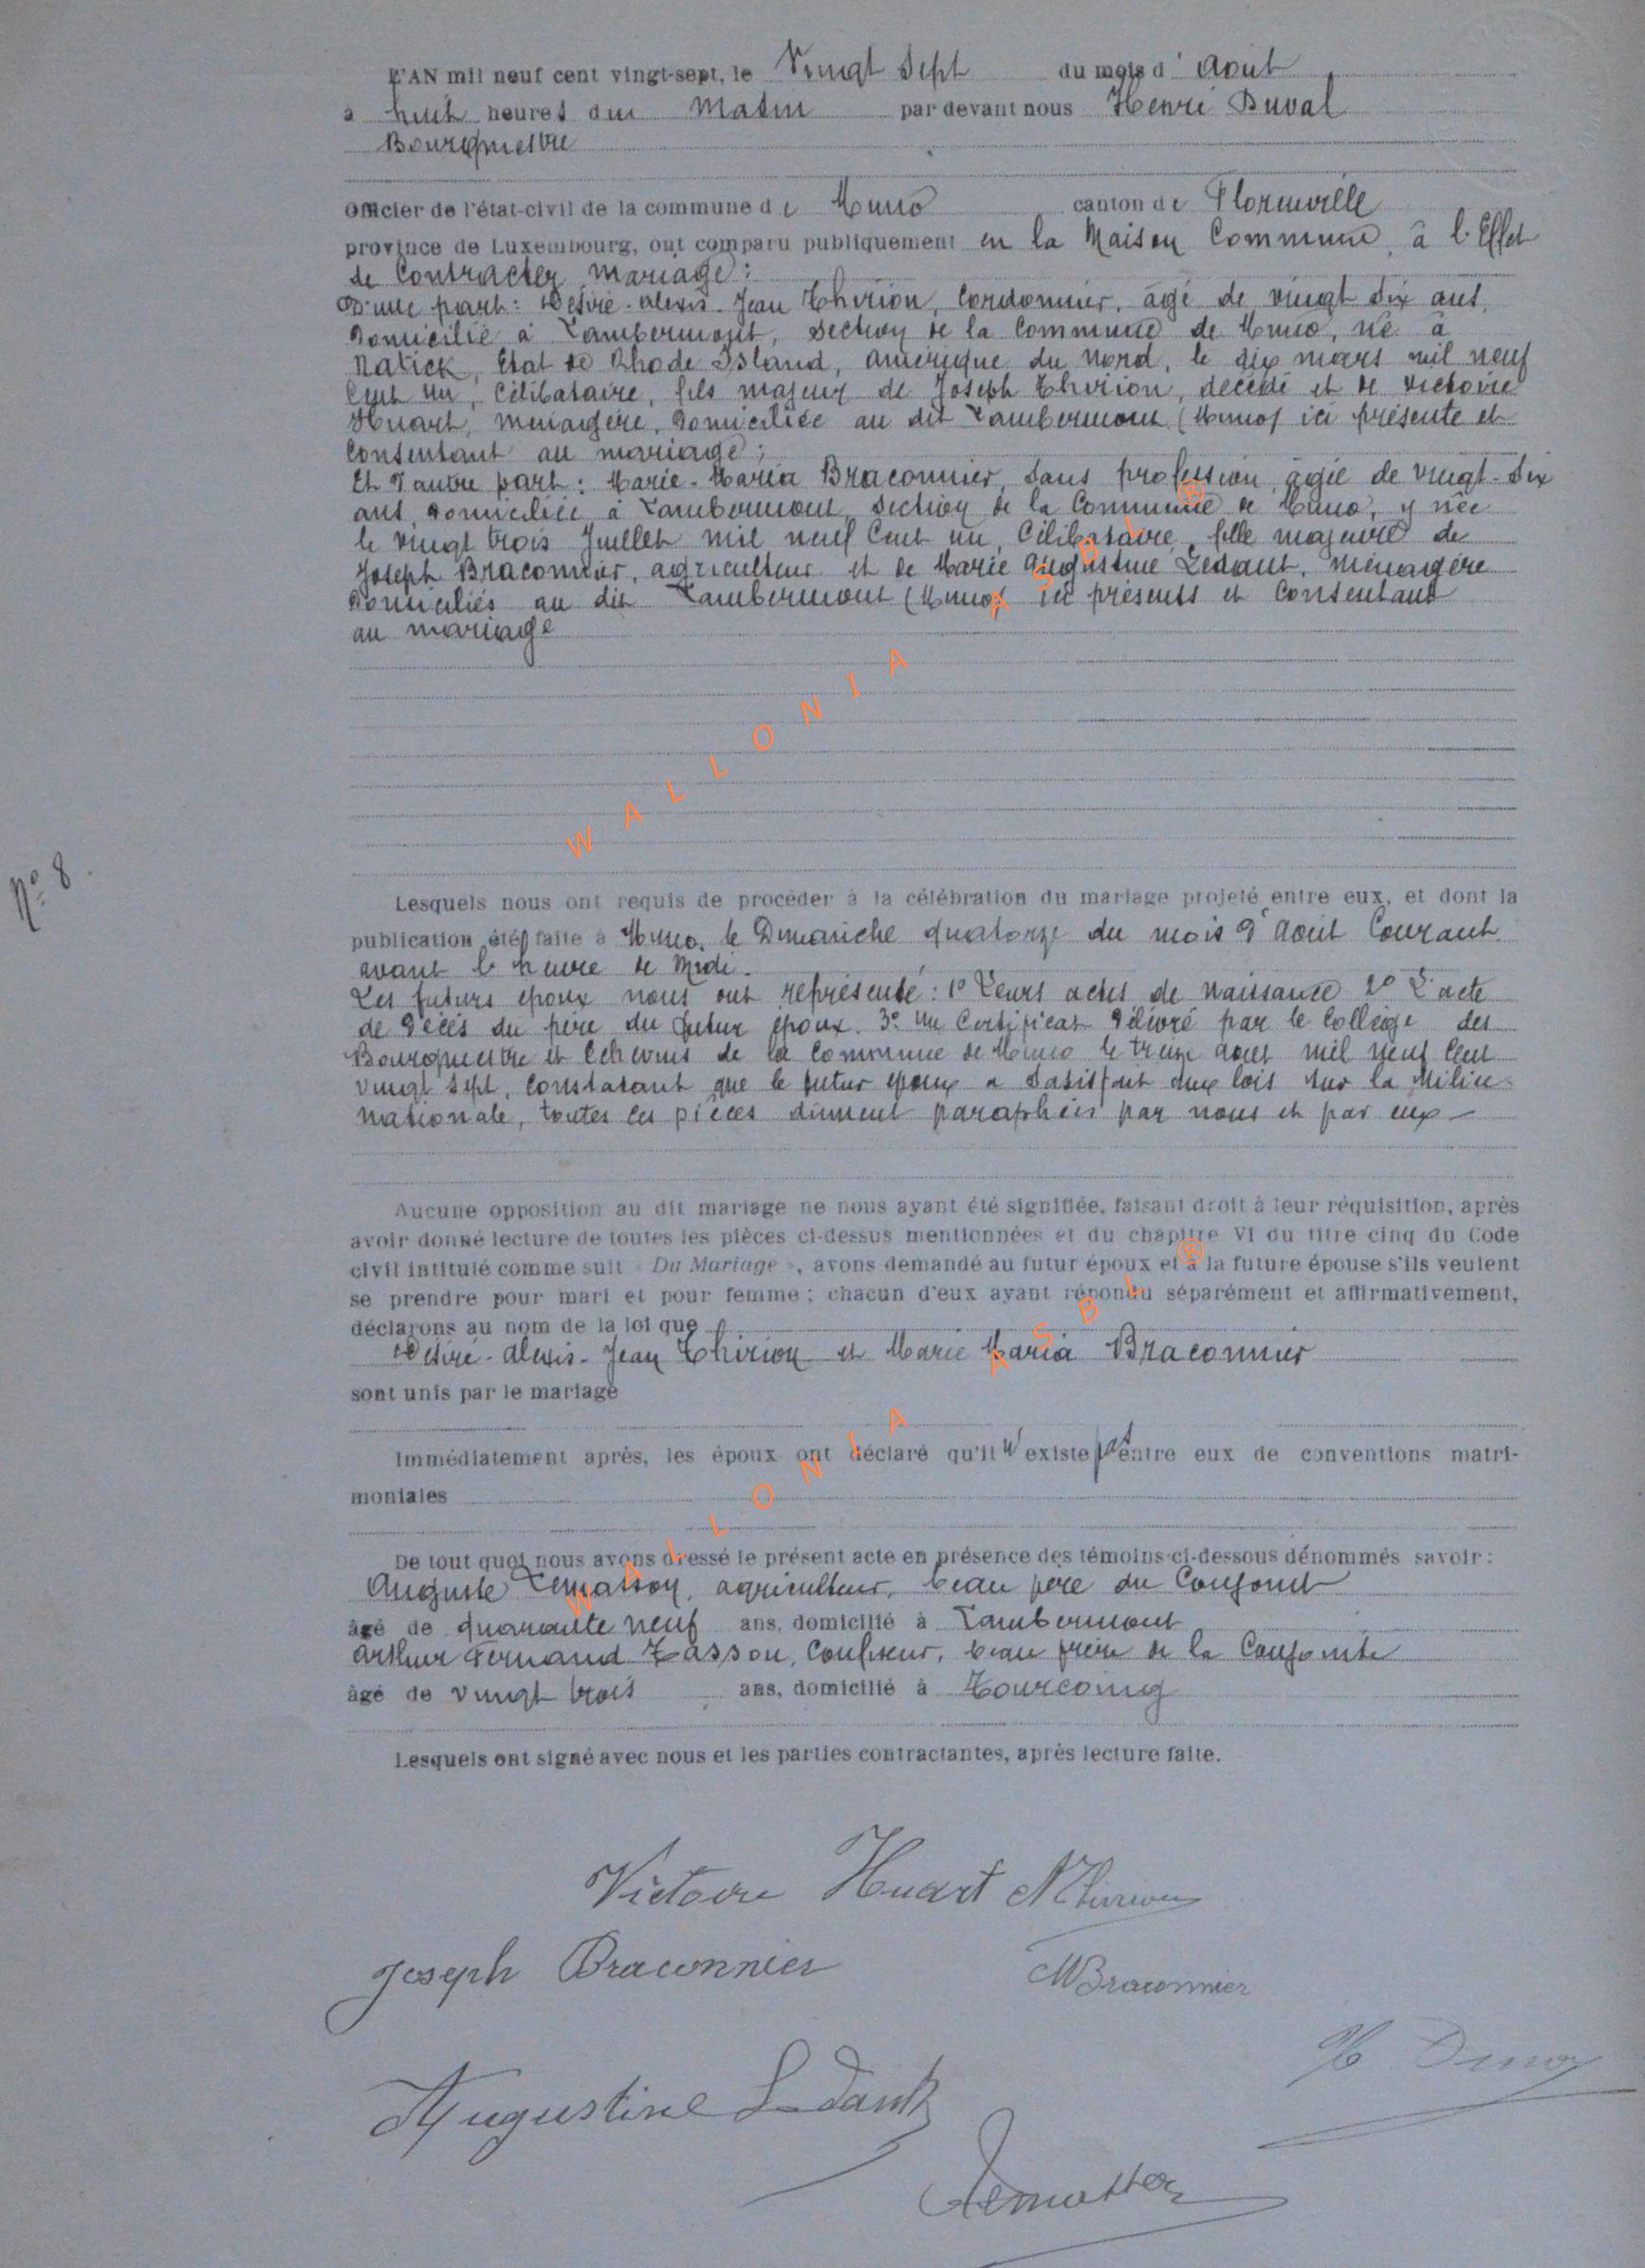 L'AN mil neuf cent vingt-sept, le Vingt Sept du mois d'Aout
à huit heures du Matin par devant nous Henri Duval
Bourgmestre
Officier de l'état-civil de la commune de Muno canton de Florenville
province de Luxembourg, ont comparu publiquement en la Maison Commune, à l'Effet
de Contracter mariage :
D'une part : Désiré-Alexis-Jean Thirion, Cordonnier, âgé de vingt six ans,
Domicilié à Lambermont, section de la Commune de Muno, né à
Natick, Etat de Rhode Island, amérique du Nord, le dix mars mil neuf
Cent un, Célibataire, fils majeur de Joseph Thirion, décédé et de Victoire
Huart, ménagère, Domiciliée au dit Lambermont (Muno) ici présente et
Consentant au mariage ;
Et d'autre part : Marie-Maria Braconnier, Sans profession, âgée de vingt-six
ans, Domiciliée à Lambermont, section de la Commune de Muno, y née
le vingt trois Juillet mil neuf Cent un, Célibataire, fille majeure de
Joseph Braconnier, agriculteur et de Marie Augustine Ledant, ménagère
Domiciliés au dit Lambermont (Muno) ici présents et Consentant
au mariage
WALLONIA ASBL ®
N° 8.
Lesquels nous ont requis de procéder à la célébration du mariage projeté entre eux, et dont la
publication été faite à Muno, le Dimanche quatorze du mois d'Aout Courant
avant l'heure de Midi.
Les futurs époux nous ont représenté : 1° Leurs actes de naissance 2° L'acte
de décès du père du futur époux. 3° Un Certificat délivré par le Collège des
Bourgmestre et Echevins de la Commune de Muno le treize aout mil neuf Cent
vingt sept, constatant que le futur époux a satisfait aux lois sur la Milice
nationale, toutes ces pièces dûment paraphées par nous et par eux —
Aucune opposition au dit mariage ne nous ayant été signifiée, faisant droit à leur réquisition, après
avoir donné lecture de toutes les pièces ci-dessus mentionnées et du chapitre VI du titre cinq du Code
civil intitulé comme suit « Du Mariage », avons demandé au futur époux et à la future épouse s'ils veulent
se prendre pour mari et pour femme ; chacun d'eux ayant répondu séparément et affirmativement,
déclarons au nom de la loi que
Désiré-Alexis-Jean Thirion et Marie Maria Braconnier
sont unis par le mariage
Immédiatement après, les époux ont déclaré qu'il n'existe pas entre eux de conventions matri-
moniales
WALLONIA ASBL ®
De tout quoi nous avons dressé le présent acte en présence des témoins ci-dessous dénommés savoir :
Auguste Lemasson, agriculteur, beau père du Conjoint
âgé de quarante neuf ans, domicilié à Lambermont
Arthur Fernand Tasson, Coiffeur, beau frère de la Conjointe
âgé de vingt trois ans, domicilié à Tourcoing
Lesquels ont signé avec nous et les parties contractantes, après lecture faite.
Victoire Huart Thirion
Joseph Braconnier M Braconnier
Augustine Ledant